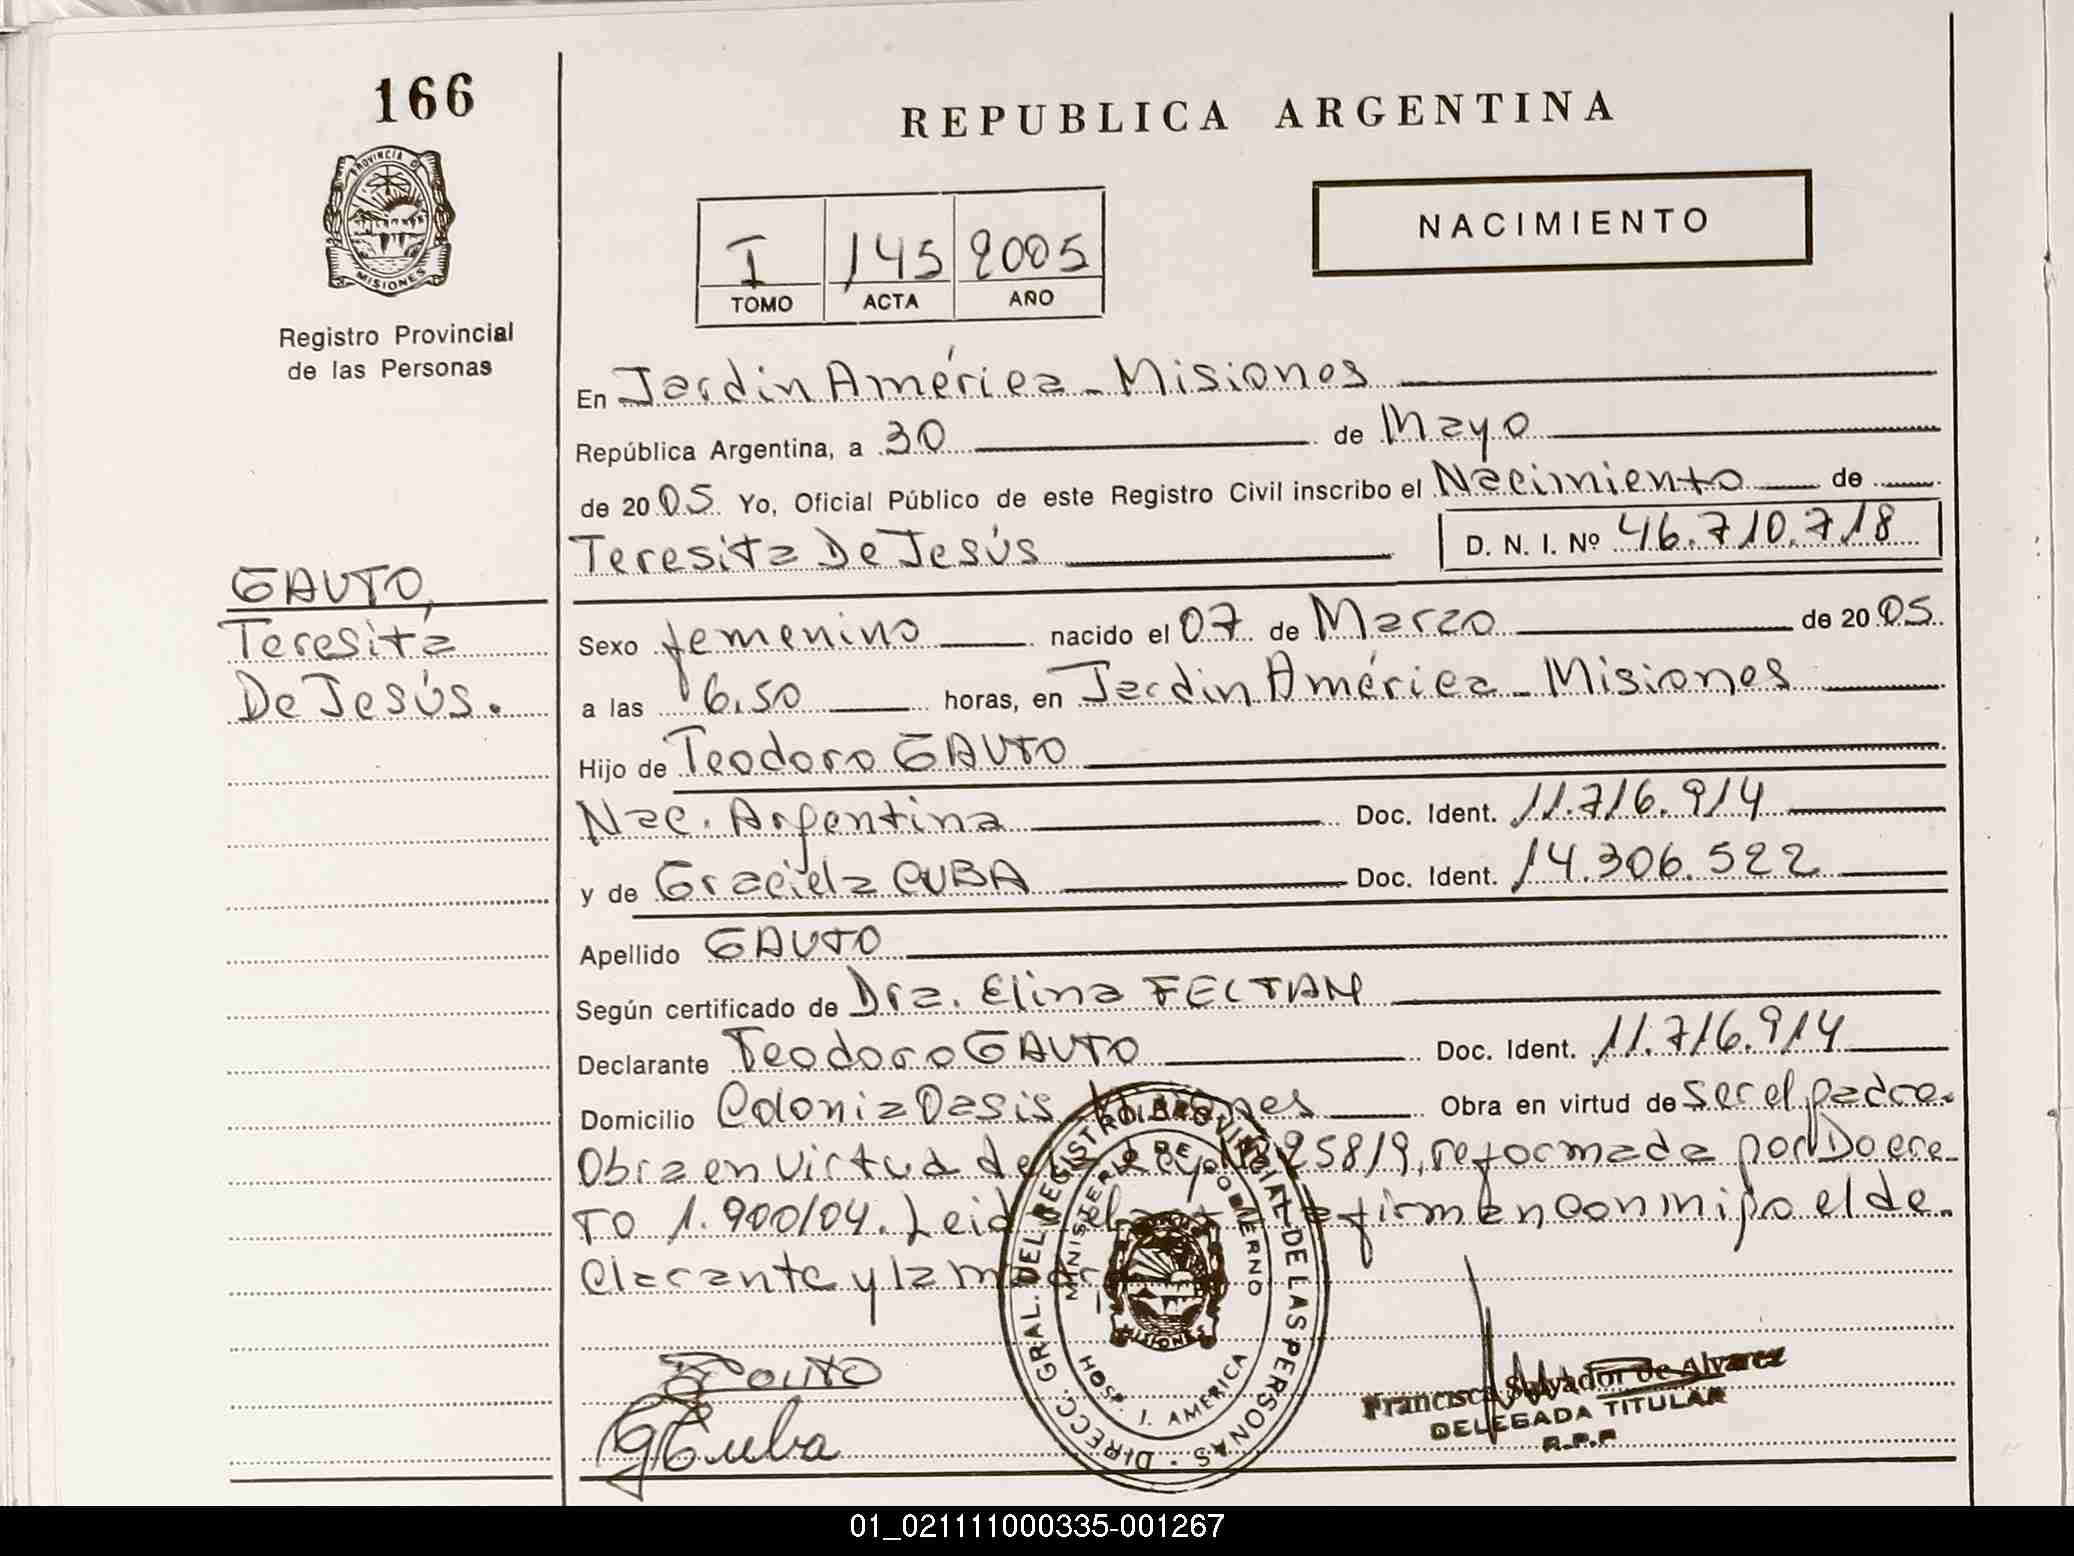 166
REPUBLICA ARGENTINA
PROVINCIA DE
MISIONES
Registro Provincial
de las Personas
NACIMIENTO
I 145 2005
TOMO ACTA AÑO
En Jardin América - Misiones
República Argentina, a 30 de Mayo
de 2005 Yo, Oficial Público de este Registro Civil inscribo el Nacimiento de
Teresita De Jesús D. N. I. Nº 46.710.718
GAUTO,
Teresita
De Jesús.
Sexo femenino nacido el 07 de Marzo de 2005.
a las 6.50 horas, en Jardin América - Misiones
Hijo de Teodoro GAUTO
Nac. Argentina Doc. Ident. 11.716.914
y de Graciela CUBA Doc. Ident. 14.306.522
Apellido GAUTO
Según certificado de Dra. Elina FELTAN
Declarante Teodoro GAUTO Doc. Ident. 11.716.914
Domicilio Colonia Oasis Misiones Obra en virtud de ser el padre.
Obra en virtud de la Ley 25819, reformada por Decre-
TO 1.900/04. Leida el acta firman conmigo el de-
clarante y la madre
DIRECC. GRAL. DEL REGISTRO PROVINCIAL DE LAS PERSONAS
MINISTERIO DE GOBIERNO
MISIONES
HOSP. J. AMERICA
GCuba
Francisca Salvador de Alvarez
DELEGADA TITULAR
R.P.P
01_021111000335-001267